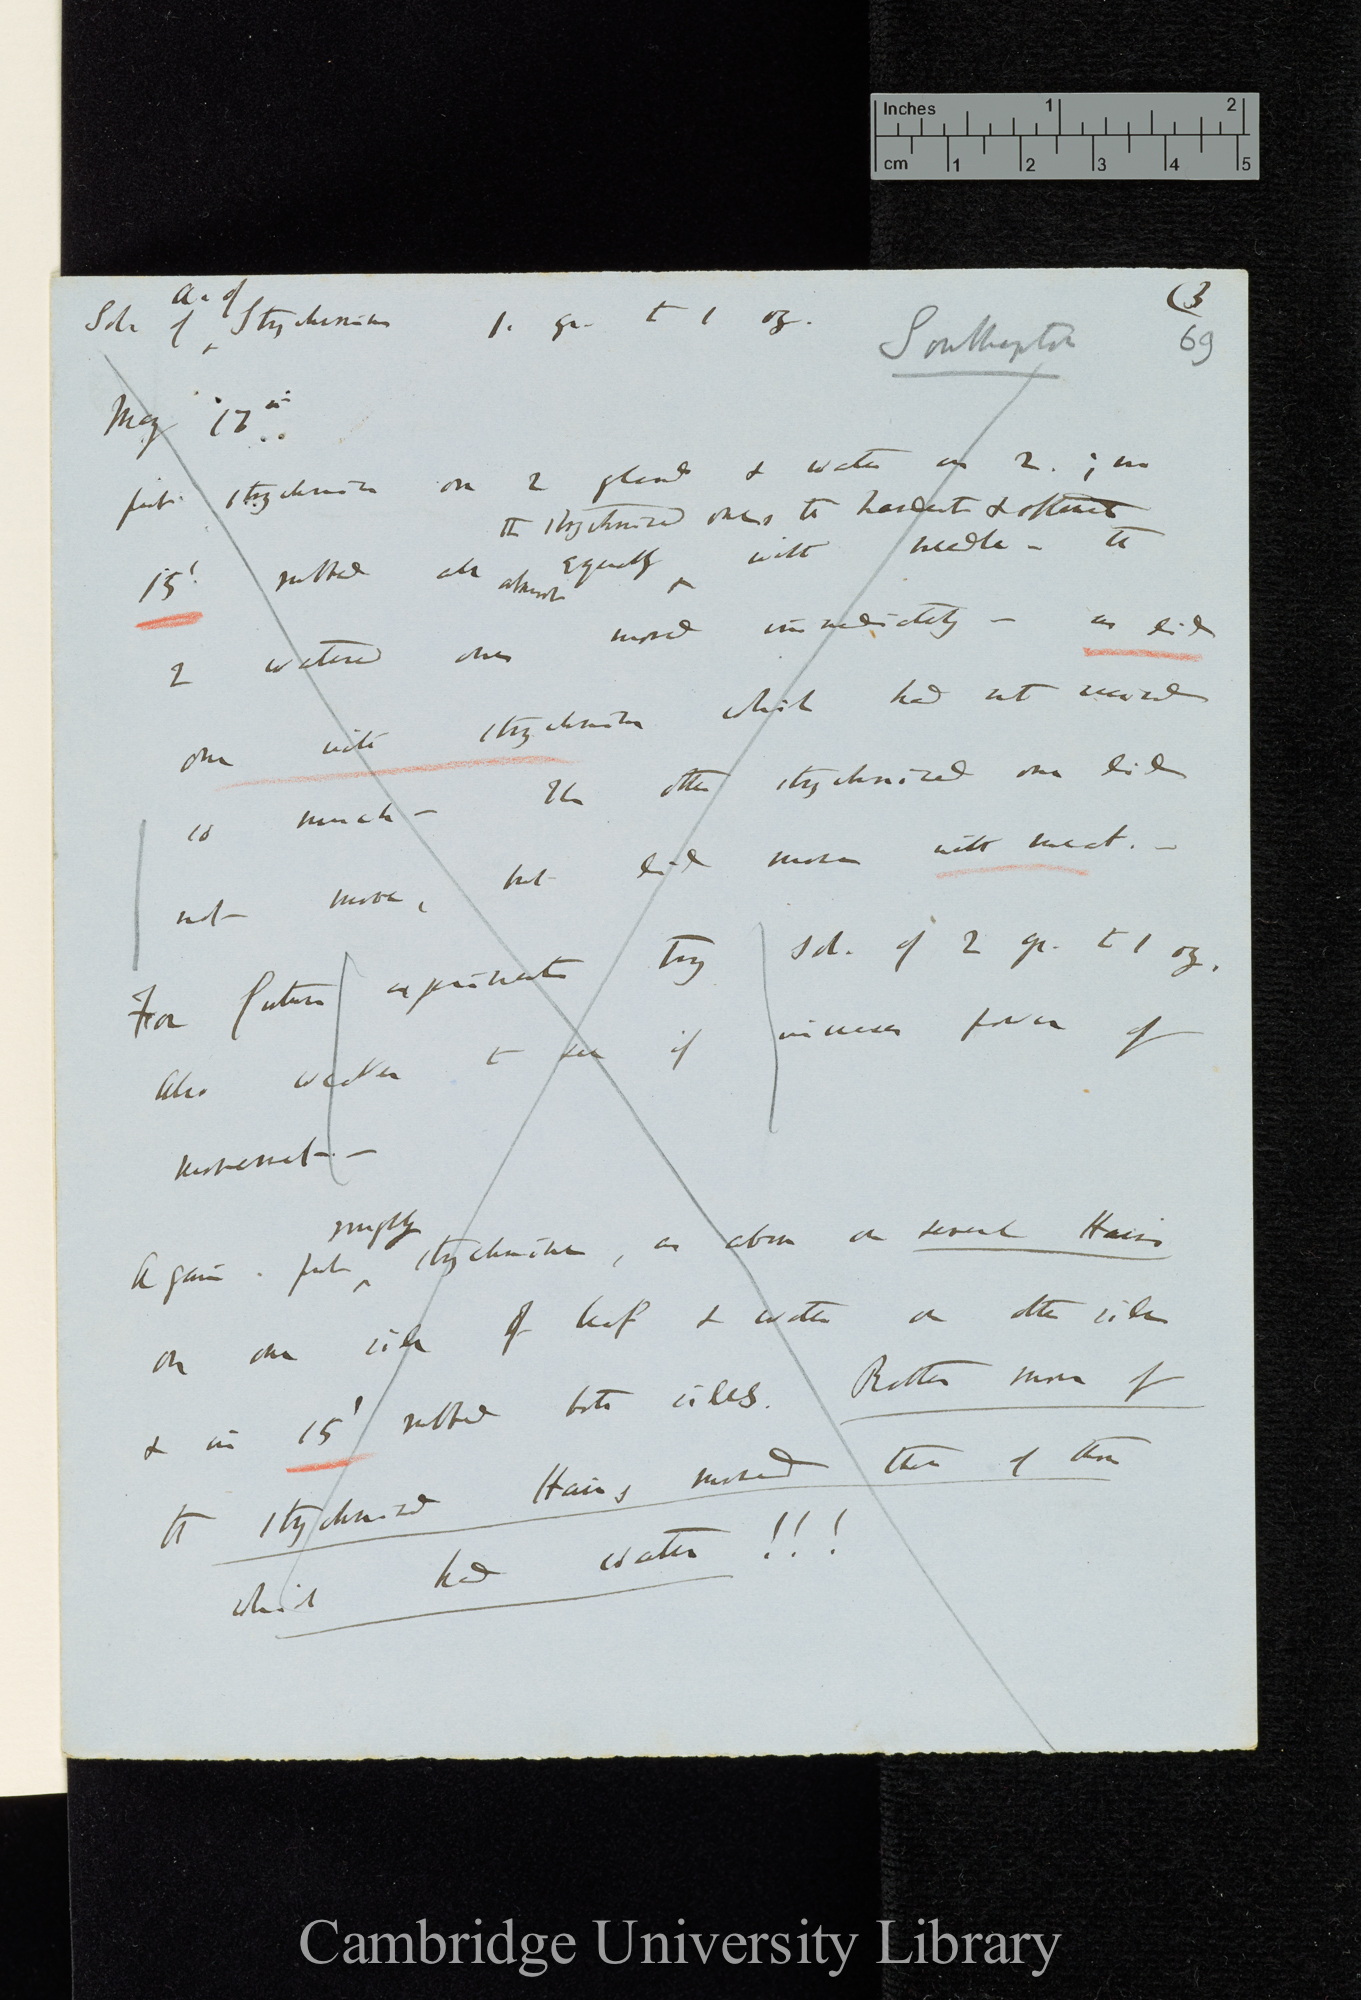 Inches 1 2
cm 1 2 3 4 5
(3
Sol. of Strychnine 1. gr. to 1 oz.
Southampton
69
May 17th
put strychnine on 2 glands & water on 2. ; in
the strychnined ones the hardest & oftenest
15' rubbed all almost equally ^ with needle — the
2 watered ones moved immediately — as did
one with strychnine which had not moved
so much — The other strychnined one did
not move, but did move with meat. —
For future experiments try sol. of 2 gr. to 1 oz.
Also weaker to see if increases power of
movement. —
Again put ^ strychnine, as above on several Hairs
on one side of leaf & water on other side
& in 15' rubbed both sides. Rather more of
the strychnined Hairs moved than of those
which had water !!!
Cambridge University Library